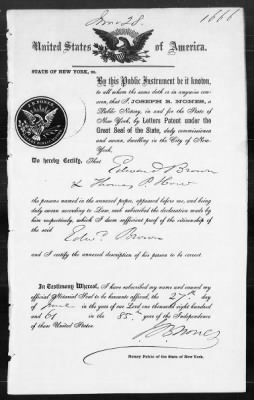 June 28.
1666
United States of America.
STATE OF NEW YORK, ss.
By this Public Instrument be it known,
to all whom the same doth or in anywise con-
cern, that I, JOSEPH B. NONES, a
Public Notary, in and for the State of
New York, by Letters Patent under the
Great Seal of the State, duly commissioned
and sworn, dwelling in the City of New-
York,
Do hereby Certify, That
Edward Brown
& Thomas P. How
the persons named in the annexed paper, appeared before me, and being
duly sworn according to Law, each subscribed the declaration made by
him respectively, which I deem sufficient proof of the citizenship of
the said
Edwd. Brown
and I certify the annexed description of his person to be correct
In Testimony Whereof, I have subscribed my name and caused my
official Notarial Seal to be hereunto affixed, the 27th day
of June in the year of our Lord one thousand eight hundred
and 61 in the 85th year of the Independence
of these United States.
J B Nones
Notary Public of the State of New York.